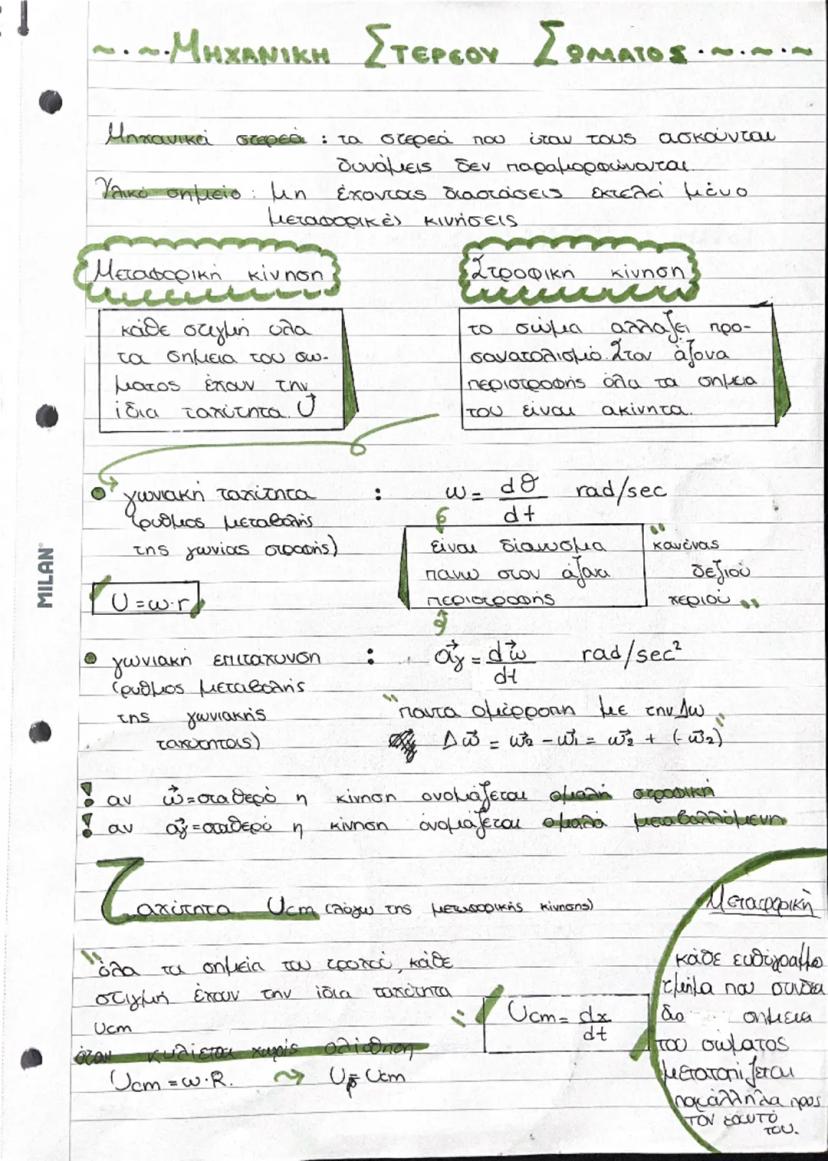 ~·~·ΜΗΧΑΝΙΚΗ ΣΤΕΡΕΟΥ ΣΩΜΑΤΟΣ·~·~·~
Μηχανικά στερεά : τα στερεά που όταν τους ασκούνται
δυνάμεις δεν παραμορφώνονται.
Υλικό σημείο : μη έχοντας διαστάσεις εκτελεί μόνο
μεταφορικές κινήσεις
Μεταφορική κίνηση
κάθε στιγμή όλα
τα σημεία του σω-
ματος έχουν την
ίδια ταχύτητα. U⃗
Στροφική κίνηση
το σώμα αλλάζει προ-
σανατολισμό. Στον άξονα
περιστροφής όλα τα σημεία
του είναι ακίνητα.
γωνιακή ταχύτητα : ω = dθ/dt rad/sec
(ρυθμος μεταβολής
της γωνίας στροφής)
είναι διάνυσμα
πανω στον άξονα
περιστροφής
"κανένας
δεξιού
χεριού"
U = ω·r
γωνιακή επιταχυνση : α⃗γ = dω⃗/dt rad/sec²
(ρυθμος μεταβολής
της γωνιακής
ταχύτητας)
"παντα ομόρροπη με την Δω"
Δω⃗ = ω⃗2 - ω⃗1 = ω⃗2 + (-ω⃗2)
! αν ω⃗=σταθερό η κίνηση ονομάζεται ομαλή στροφική
! αν α⃗γ=σταθερό η κίνηση ονομάζεται ομαλά μεταβαλλόμενη
Ταχύτητα Ucm (λόγω της μεταφορικής κίνησης)
"όλα τα σημεία του τροχού, κάθε
στιγμή έχουν την ίδια ταχύτητα
Ucm "
Ucm = dx/dt
όταν κυλίεται χωρίς ολίσθηση
Ucm = ω·R. ⤳ Up = Ucm
Μεταφορική
κάθε ευθύγραμμο
τμήμα που συνδέει
δυο σημεια
του σώματος
μετατοπίζεται
παράλληλα προς
τον εαυτό
του.
MILAN